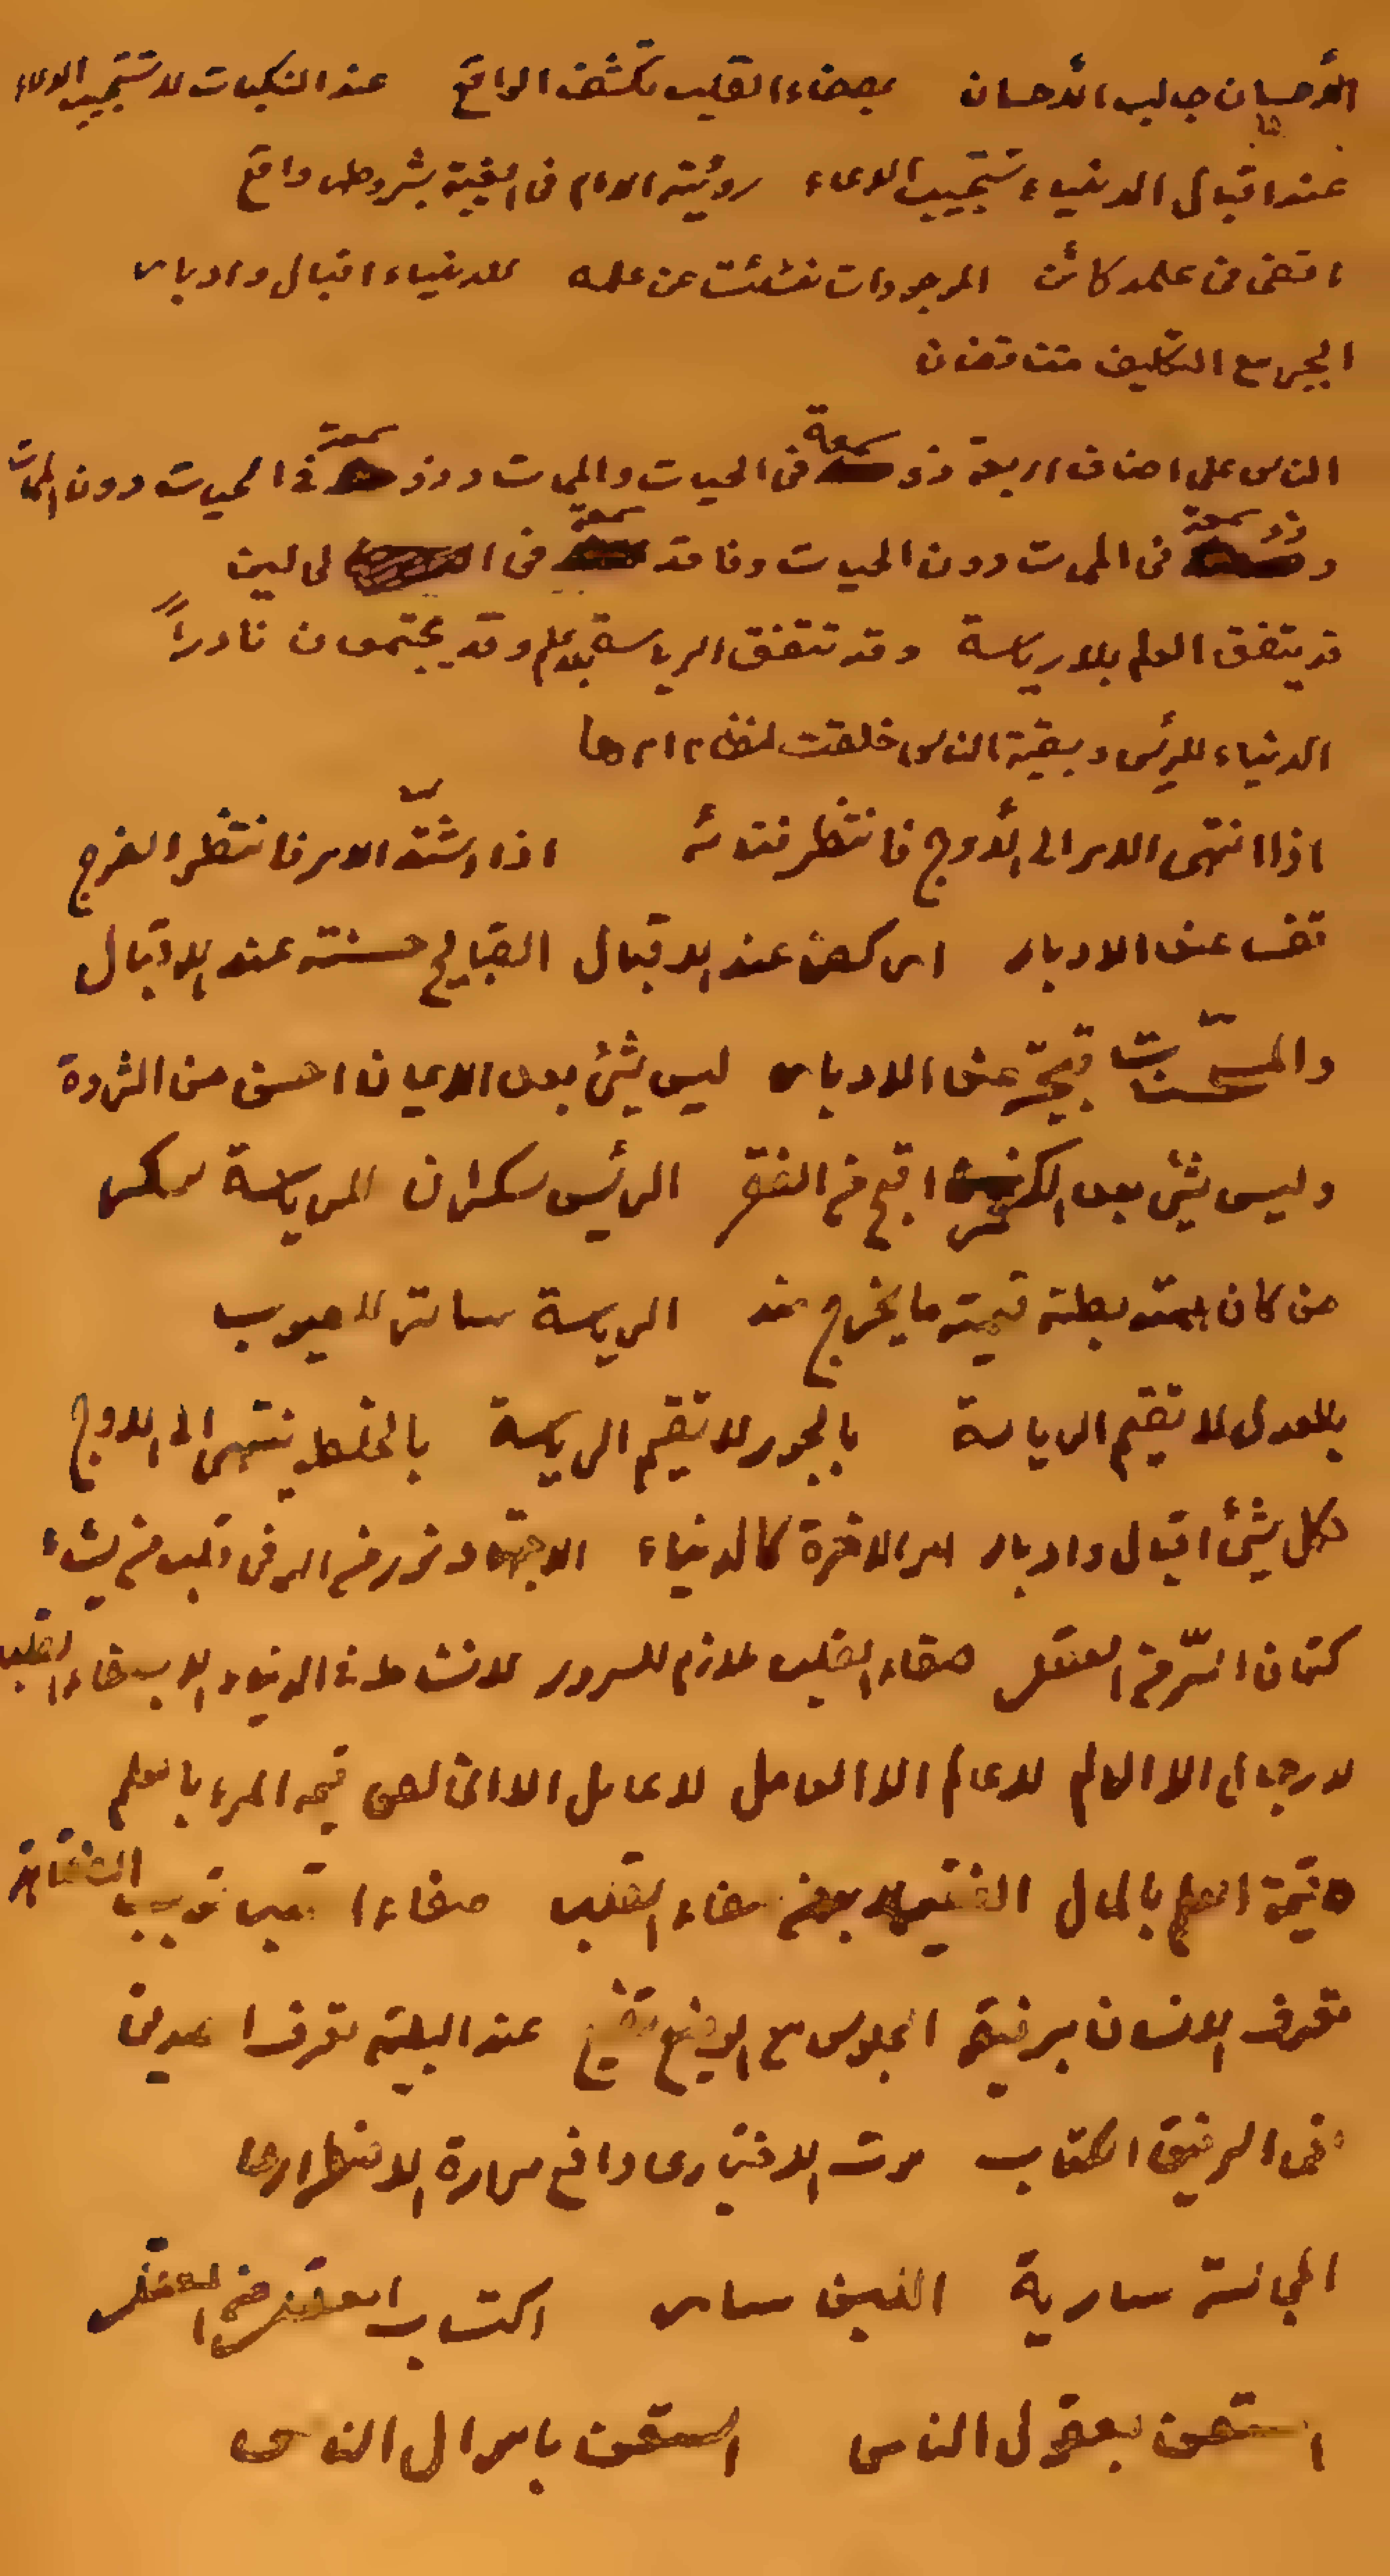 الأحسان جالب الأحسان بصفاء القلب تكشف الواقع عند النكبات لا تستجيب الدعاء
عند اقبال الدنياء تستجيب الدعاء رؤيته الامام فى الغيبة بشروطه واقع
من علمه كائن الموجودات نشئت عن علمه للدنياء اقبال وادبار
الجبر مع التكليف متناقضان
الناس على اصناف اربعة ذو سمعة فى الحيات والممات وذو سمعة فى الحيات دون الممات
وذو سمعة فى الممات دون الحيات وفاقد سمعة فى الحالين
قد يتفق العلم بلا رياسة وقد تتفق الرياسة بلا علم وقد يجتمعان نادراً
الدنياء للرئس وبقية الناس خلقت لنظام امرها
اذا انتهى الامر الى الأوج فانتظر فنائه اذا اشتدّ الامر فانتظر الفرج
تقف عند الادبار اركض عند الاقبال القبايح حسنة عند الاقبال
والمحسنات قبيحة عند الادبار ليس شئ بعد الايمان احسن من الثروة
وليس شئ بعد الكفر اقبح من الفقر الرئيس سكران للرياسة سكر
من كان همته بطنه قيمته ما يخرج منه الرياسة ساتر للعيوب
بالعدل لا تقيم الرياسة بالجور لا تقيم الرياسة بالخلط ينتهى الى الاوج
لكل شئ اقبال وادبار امر الاخرة كالدنياء الاجتهاد نور من الله فى قلب من يشاء
كتمان السّر من العقل صفاء القلب ملازم للسرور لا نشاط فى الدنياء الا بصفاء القلب
لا رجال الا العالم لا عالم الا العامل لا عامل الا الخالص قيمة المرء بالعلم
وقيمة العلم بالمال صفاء القلب صفاء القلب توجب
تعرف الانسان برفيقه الجلوس مع الوضيع عند البلية تعرف
الرفيق الكتاب موت الاختيارى دافع مرارة الاضطرارها
المجانسة سارية الفيض سار اكتساب العقل من العقل
استعن بعقول الناس استعن باموال الناس